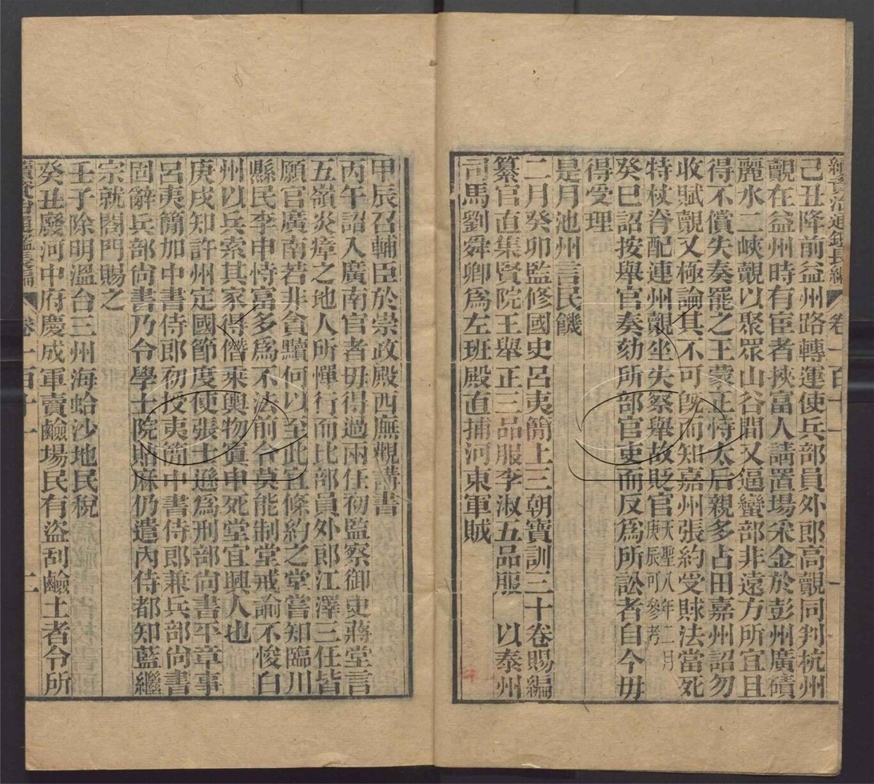 續資治通鑑長編 卷一百十一
己丑降前益州路轉運使兵部員外郎高覿同判杭州
覿在益州時有宦者挾富人請置場采金於彭州廣磧
麗水二峽覿以聚眾山谷間又逼蠻部非遠方所宜且
得不償失奏罷之王蒙正恃太后親多占田嘉州詔勿
收賦覿又極論其不可既而知嘉州張約受賕法當死
特杖脊配連州覿坐失察舉故貶官天聖八年二月庚辰可參考
癸巳詔按舉官奏劾所部官吏而反為所訟者自今毋
得受理
是月池州言民饑
二月癸卯監修國史呂夷簡上三朝寶訓三十卷賜編
纂官直集賢院王舉正三品服李淑五品服 以泰州
司馬劉舜卿為左班殿直捕河東軍賊
甲辰召輔臣於崇政殿西廡觀講書
丙午詔入廣南官者毋得過兩任初監察御史蔣堂言
五嶺炎瘴之地人所憚行而比部員外郎江澤三任皆
願官廣南若非貪黷何以至此宜條約之堂嘗知臨川
縣民李申恃富多為不法前令莫能制堂戒諭不悛白
州以兵索其家得僭乘輿物寘申死堂宜興人也
庚戌知許州定國節度使張士遜為刑部尚書平章事
呂夷簡加中書侍郎初授夷簡中書侍郎兼兵部尚書
固辭兵部尚書乃令學士院貼麻仍遣內侍都知藍繼
宗就閤門賜之
壬子除明溫台三州海蛤沙地民稅
癸丑廢河中府慶成軍賣鹼場民有盜刮鹼土者令所
續資治通鑑長編 卷一百十一 二